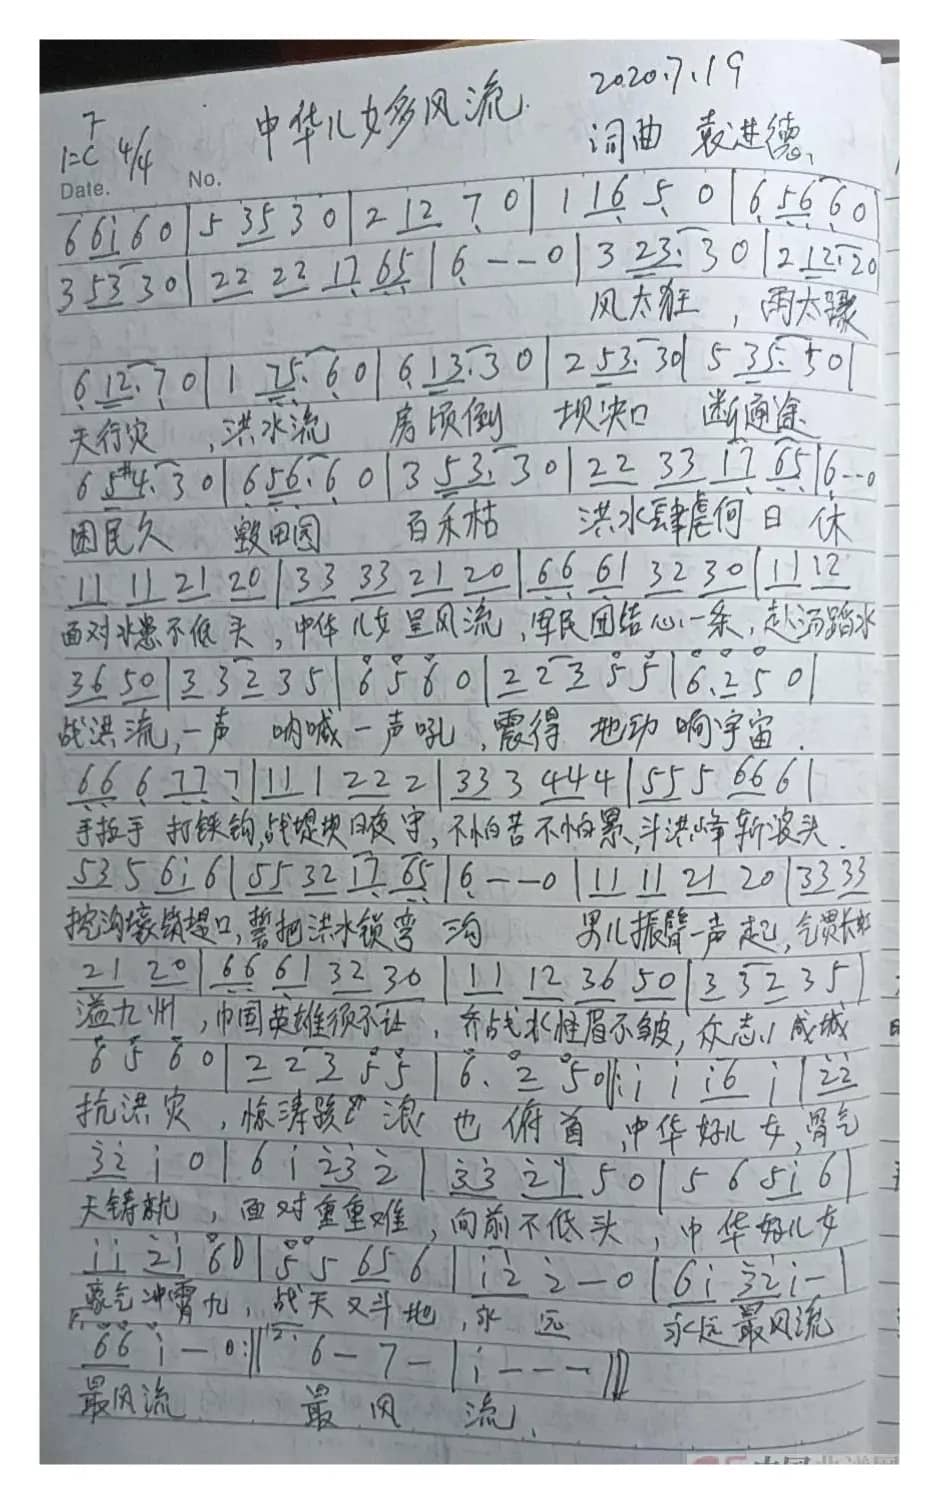 中华儿女多风流.
2020.7.19
F
1=C 4/4
词曲 袁进德
Date. No.
6 6i 6 0 | 5 35 3 0 | 2 12 7 0 | 1 16 5 0 | 6 56 6 0
3 53 3 0 | 22 22 17 65 | 6 - - 0 | 3 23. 3 0 | 2 12. 20
风太狂 , 雨太骤
6 12. 7 0 | 1 75. 6 0 | 6 13. 3 0 | 2 53. 30 | 5 35. 50 |
天行灾 , 洪水流 房顷倒 坝决口 断通途
6 5#4. 3 0 | 6 56. 6 0 | 3 53. 3 0 | 22 33 17 65 | 6 - - 0
困民久 毁田园 百禾枯 洪水肆虐何日休
11 11 21 20 | 33 33 21 20 | 66 61 32 30 | 11 12
面对水患不低头 , 中华儿女呈风流 , 军民团结心一条, 赴汤踏水
36 50 | 3 3 2 3 5 | 6 5 6 0 | 2 2 3 5 5 | 6. 2 5 0 |
战洪流, 一声 呐喊一声吼 , 震得 地动 啊宇宙 .
66 6 77 7 | 11 1 22 2 | 33 3 44 4 | 55 5 66 6 |
手拉手 打铁钩, 战堤坝日夜守, 不怕苦不怕累, 斗洪峰斩波头.
53 5 6i 6 | 55 32 17 65 | 6 - - 0 | 11 11 21 20 | 33 33
挖沟壕锁堤口, 誓把洪水锁弯沟 男儿振臂一声起, 气贯长虹
21 20 | 66 61 32 30 | 11 12 36 50 | 3 3 2 3 5 |
溢九州 , 中国英雄须不让 , 奋战水性眉不皱, 众志成城
6 5 6 0 | 2 2 3 5 5 | 6. 2 5 0 ‖: i i i6 i | 22
抗洪灾 , 惊涛骇浪也俯首 , 中华好儿女, 骨气
32 i 0 | 6 i 23 2 | 33 21 5 0 | 5 6 5i 6 |
天铸就 , 面对重重难 , 向前不低头 , 中华好儿女
ii 2i 60 | 5 5 65 6 | i2 2 - 0 | 6i 32 i - |
豪气冲霄九 , 战天又斗地 , 永远 永远最风流
66 i - 0 :‖ 2. 6 - 7 - | i - - - ‖
最风流 最风流.